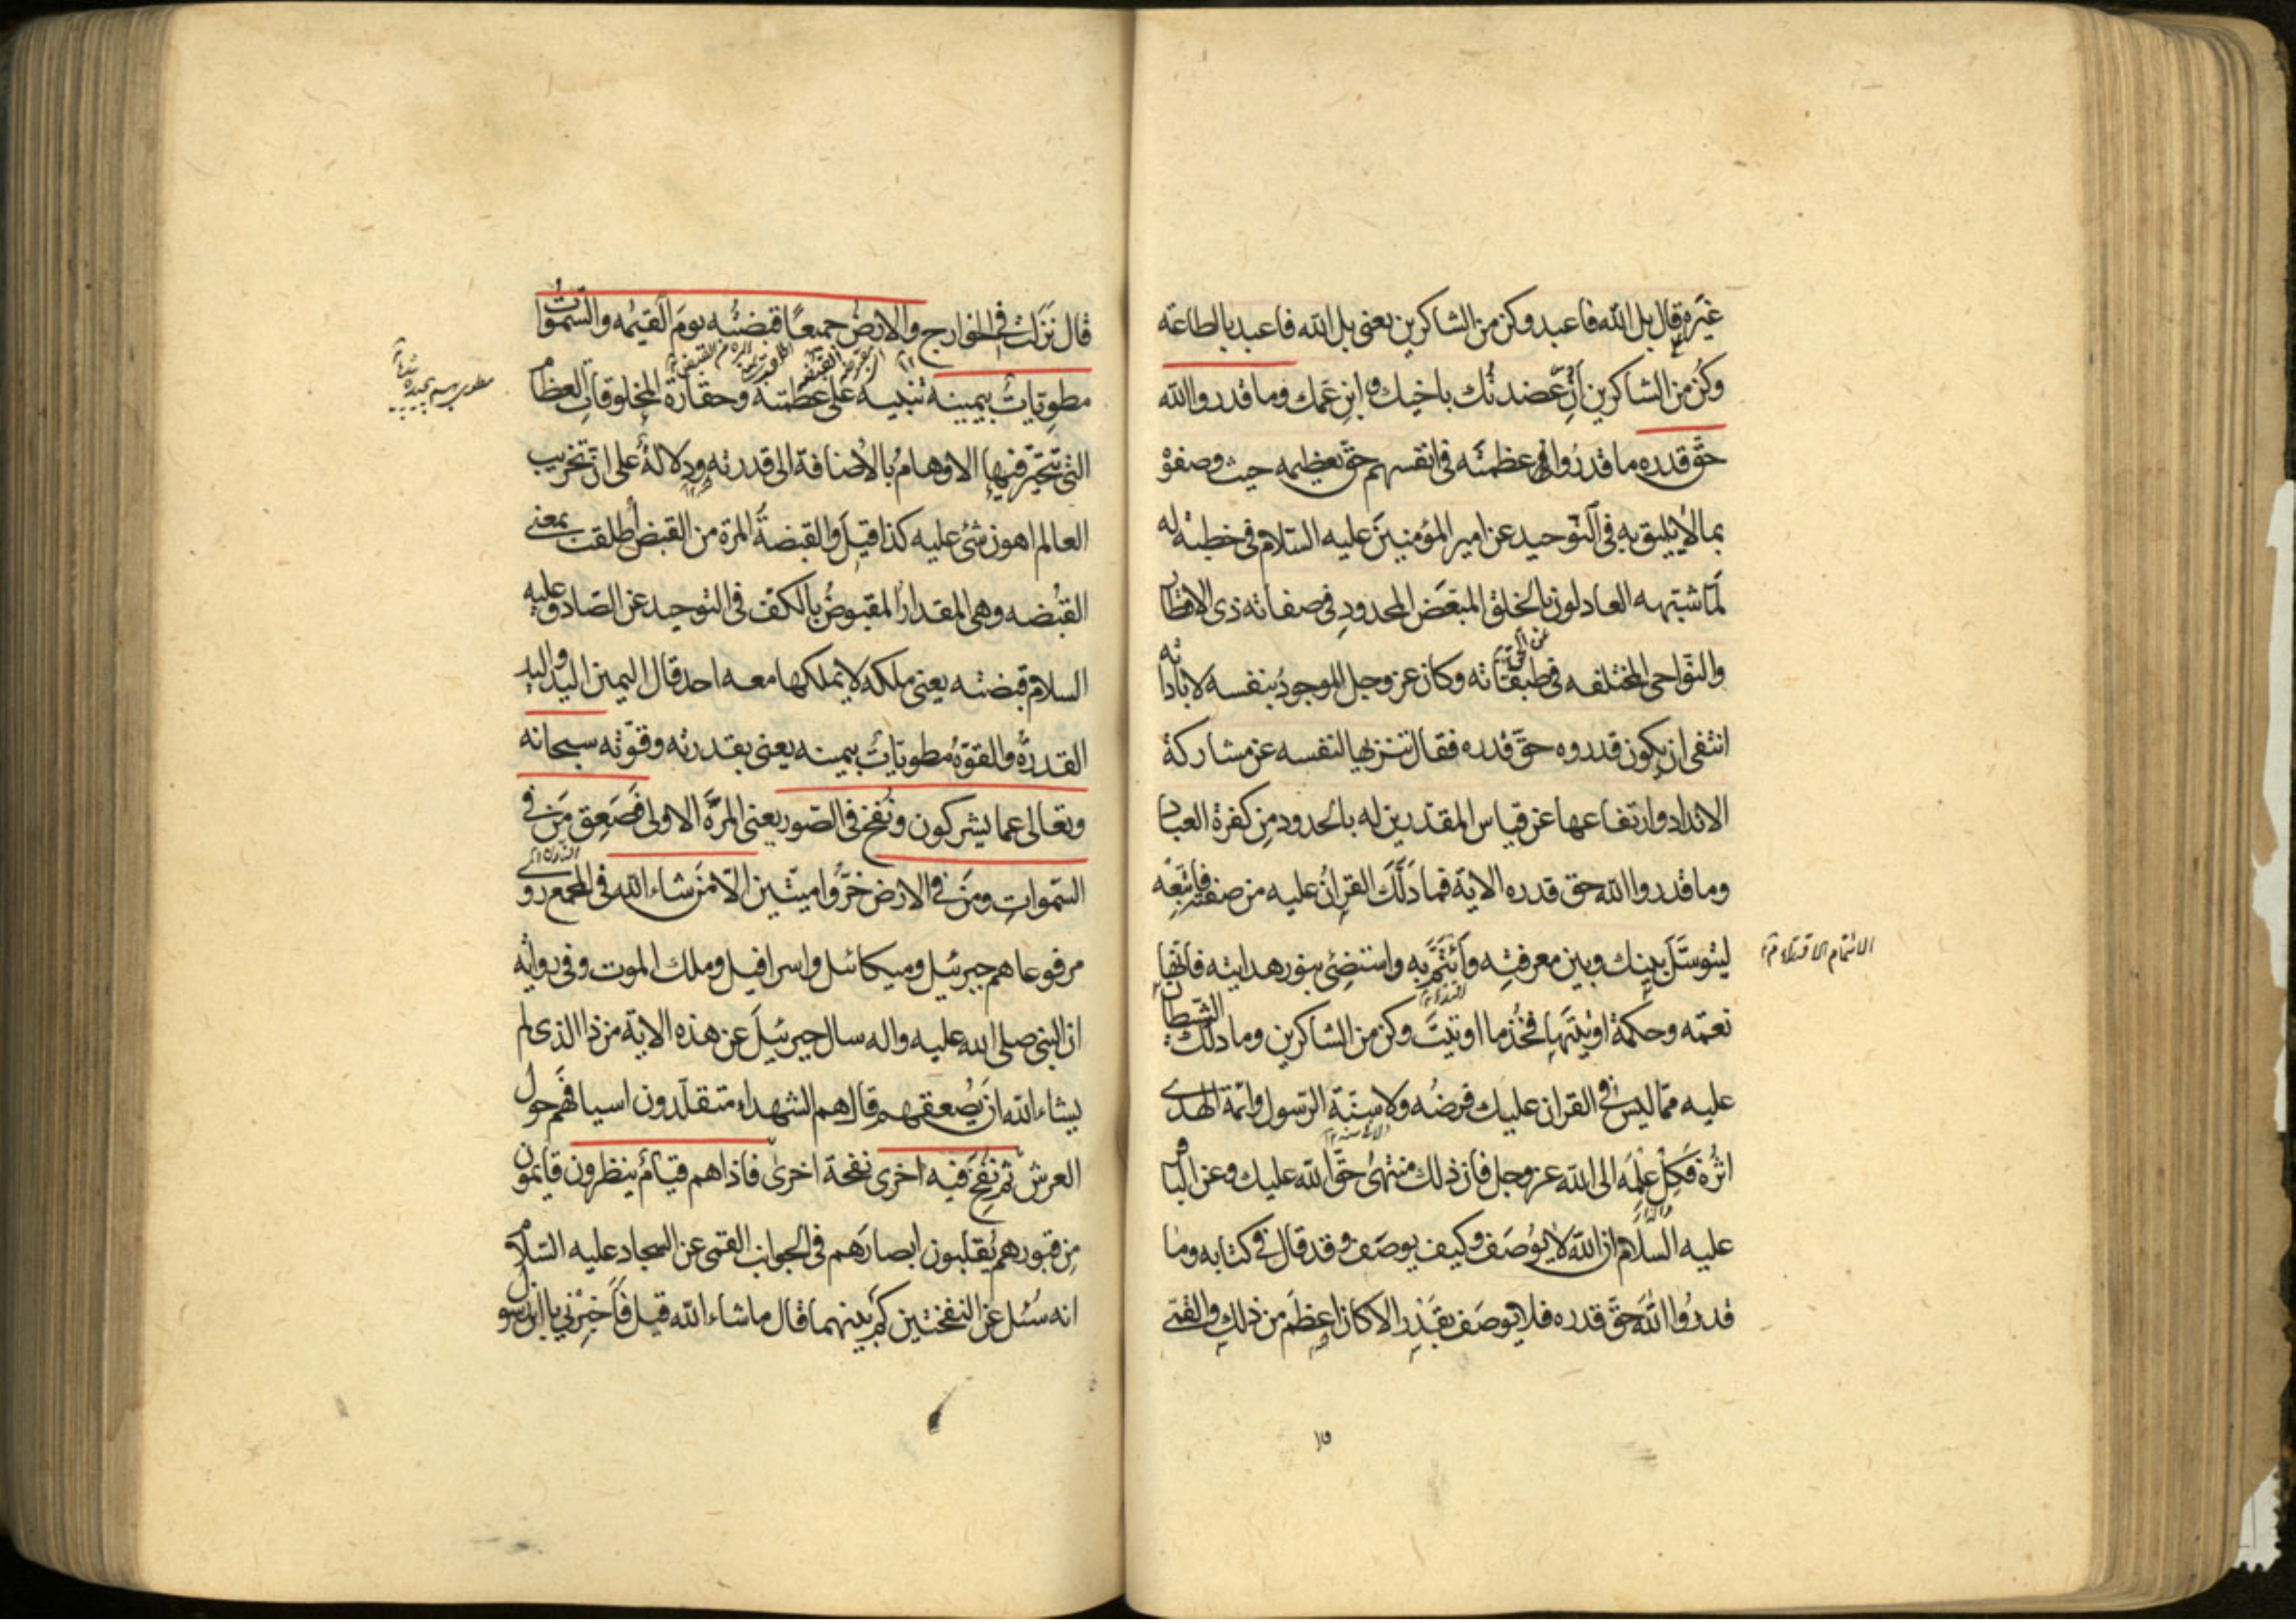 غيره ثم قال بل الله فاعبد وكن من الشاكرين يعنى بل الله فاعبد بالطاعة
وكن من الشاكرين ان عضدتك باخيك و ابن عمك وما قدروا الله
حق قدره ما قدروا عظمته فى انفسهم حق تعظيمه حيث وصفوه
بما لا يليق به فى التوحيد عن امير المؤمنين عليه السلام فى خطبة له
لما شبهه العادلون بالخلق المبعض المحدود فى صفاته ذى الاقطار
والنواحى المختلفه فى طبقاته وكان عز وجل الموجود بنفسه لا باداته
انتفى ان يكون قدروه حق قدره فقال تنزيها لنفسه عن مشاركة
الانداد وارتفاعها عن قياس المقدرين له بالحدود من كفرة العباد
وما قدروا الله حق قدره الاية فما دلك القران عليه من صفته فاتبعه
ليتوسل بينك وبين معرفته وأتم به واستضئ بنور هدايته فانها
الائتمام الاقتداء
نعمة وحكمة اوتيتها فخذ ما اوتيت وكن من الشاكرين وما دلك الشيطان
عليه مما ليس فى القران عليك فرضه ولا فى سنة الرسول وائمة الهدى
اثره فكل علمه الى الله عز وجل فان ذلك منتهى حق الله عليك وعن الباقر
عليه السلام ان الله لا يوصف وكيف يوصف وقد قال فى كتابه وما
قدروا الله حق قدره فلا يوصف بقدر الا كان اعظم من ذلك والقمى
قال نزلت فى الخوارج والارض جميعا قبضته يوم القيمه والسموات
مطويات بيمينه تنبيه على عظمته وحقارة المخلوقات العظام
التى تتحير فيها الاوهام بالاضافة الى قدرته ودلالة على ان تخريب
العالم اهون شئ عليه كذا قيل والقبضة المرة من القبض اطلقت بمعنى
القبضه وهى المقدار المقبوض بالكف فى التوحيد عن الصادق عليه
السلام قبضته يعنى ملكه لا يملكها معه احد قال اليمين اليد واليد
القدرة والقوة مطويات بيمينه يعنى بقدرته وقوته سبحانه
وتعالى عما يشركون ونفخ فى الصور يعنى المرة الاولى فصعق من فى
السموات ومن فى الارض خروا ميتين الا من شاء الله فى المجمع روى
مرفوعا هم جبرئيل وميكائيل واسرافيل وملك الموت وفى رواية
ان النبى صلى الله عليه واله سال جبرئيل عن هذه الاية من ذا الذى لم
يشاء الله ان يصعقهم قال هم الشهداء متقلدون اسيافهم حول
العرش ثم نفخ فيه اخرى نفخة اخرى فاذا هم قيام ينظرون قايمون
من قبورهم يقلبون ابصارهم فى الجوانب القمى عن السجاد عليه السلام
انه سئل عن النفختين كم بينهما قال ما شاء الله قيل فاخبرنى يا ابن رسول